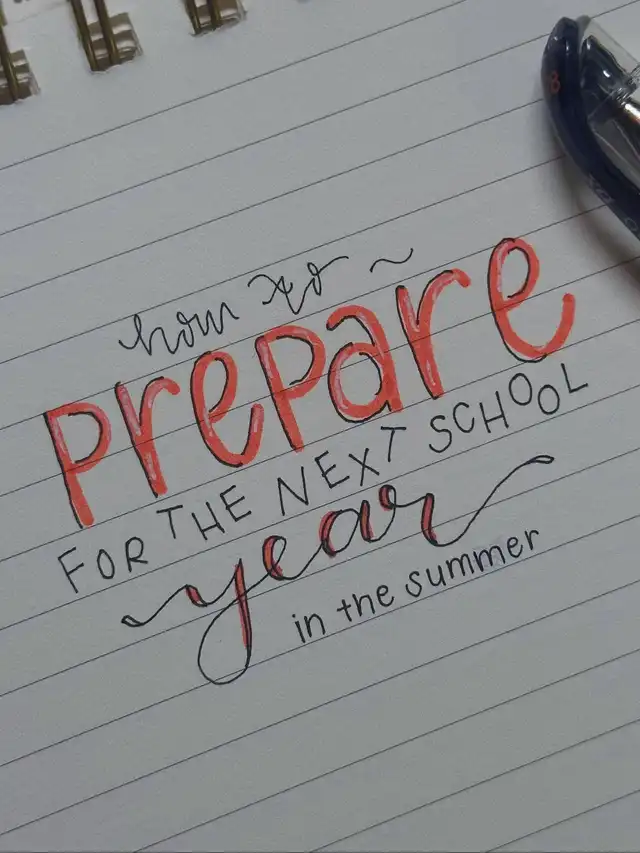 how to ~
prepare
FOR THE NEXT SCHOOL
year
in the summer